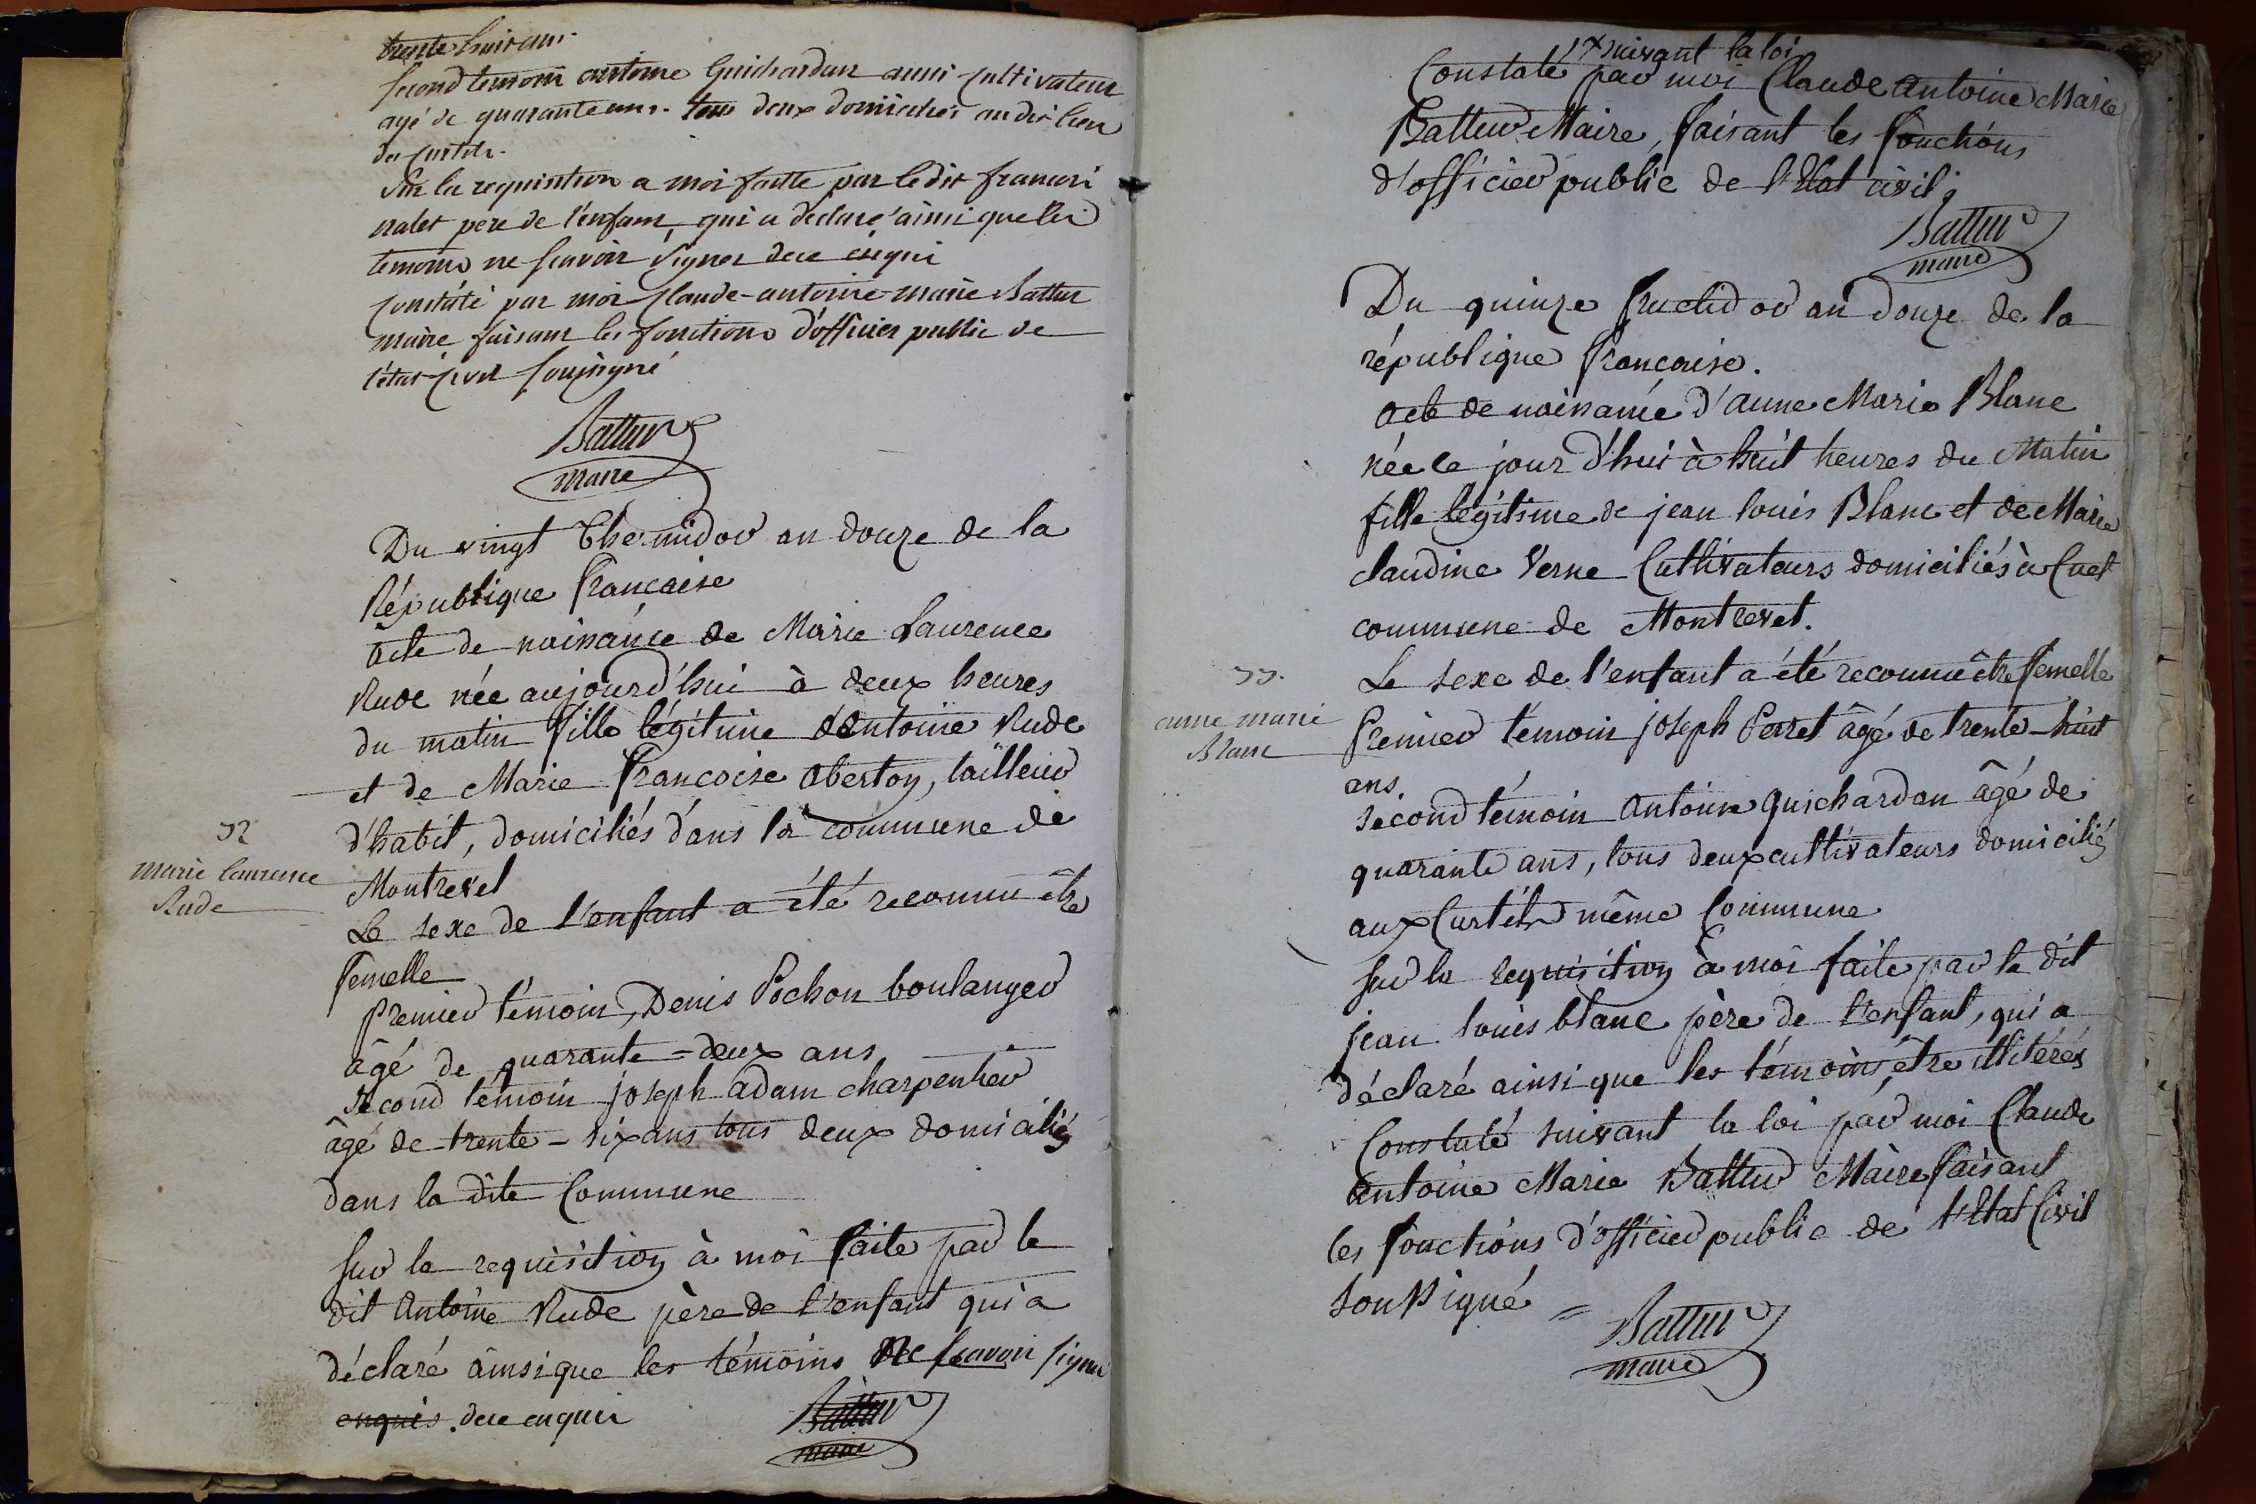 trente huit ans.
second temoin antoine Guichardan aussi cultivateur
agé de quarante ans. tous deux domiciliés au dit lieu
des curtils.
Sur la requisition a moi faitte par ledit francois
nalet pere de l'enfant, qui a declaré ainsi que les
temoins ne scavoir signer de ce enquis
constaté par moi claude-antoine-marie Battur
maire faisant les fonctions d'officier public de
l'état-civil soussigné
Battur
maire
Du vingt Thermidor an douze de la
République française
acte de naissance de Marie Laurence
Rude née aujourd'hui à deux heures
du matin fille légitime d'antoine Rude
et de Marie françoise Oberton, tailleur
d'habit, domiciliés dans la commune de
Montrevel
Le sexe de l'enfant a été reconnu être
femelle
32
marie laurence
Rude
Premier témoin, Denis Pochon boulanger
âgé de quarante=deux ans
second témoin joseph adam charpentier
âgé de trente-six ans tous deux domiciliés
dans la dite Commune
Sur la requisition à moi faite par le
dit Antoine Rude père de l'enfant qui a
déclaré ainsi que les témoins ne scavoir signer
enquis. de ce enquis
Battur
maire
suivant la loi
Constaté par moi Claude Antoine Marie
Battur Maire, faisant les fonctions
d'officier public de l'Etat civil.
Battur
maire
Du quinze fructidor an douze de la
république française.
acte de naissance d'anne Marie Blanc
née ce jour d'hui à huit heures du Matin
fille légitime de jean louis Blanc et de Marie
claudine Verne Cultivateurs domiciliés à Cuet
commune de Montrevel.
33.
anne marie
Blanc
Le sexe de l'enfant a été reconnu être femelle
Premier témoin joseph Perret âgé de trente-huit
ans.
second témoin Antoine Guichardan âgé de
quarante ans, tous deux cultivateurs domiciliés
aux Curtils même Commune
Sur la requisition à moi faite par le dit
jean louis blanc père de l'enfant, qui a
déclaré ainsi que les témoins, être illitérés
Constaté suivant la loi par moi Claude
Antoine Marie Battur Maire faisant
les fonctions d'officier public de l'Etat Civil
soussigné =
Battur
maire